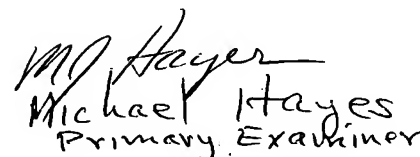 MJ Hayes
Michael Hayes
Primary Examiner